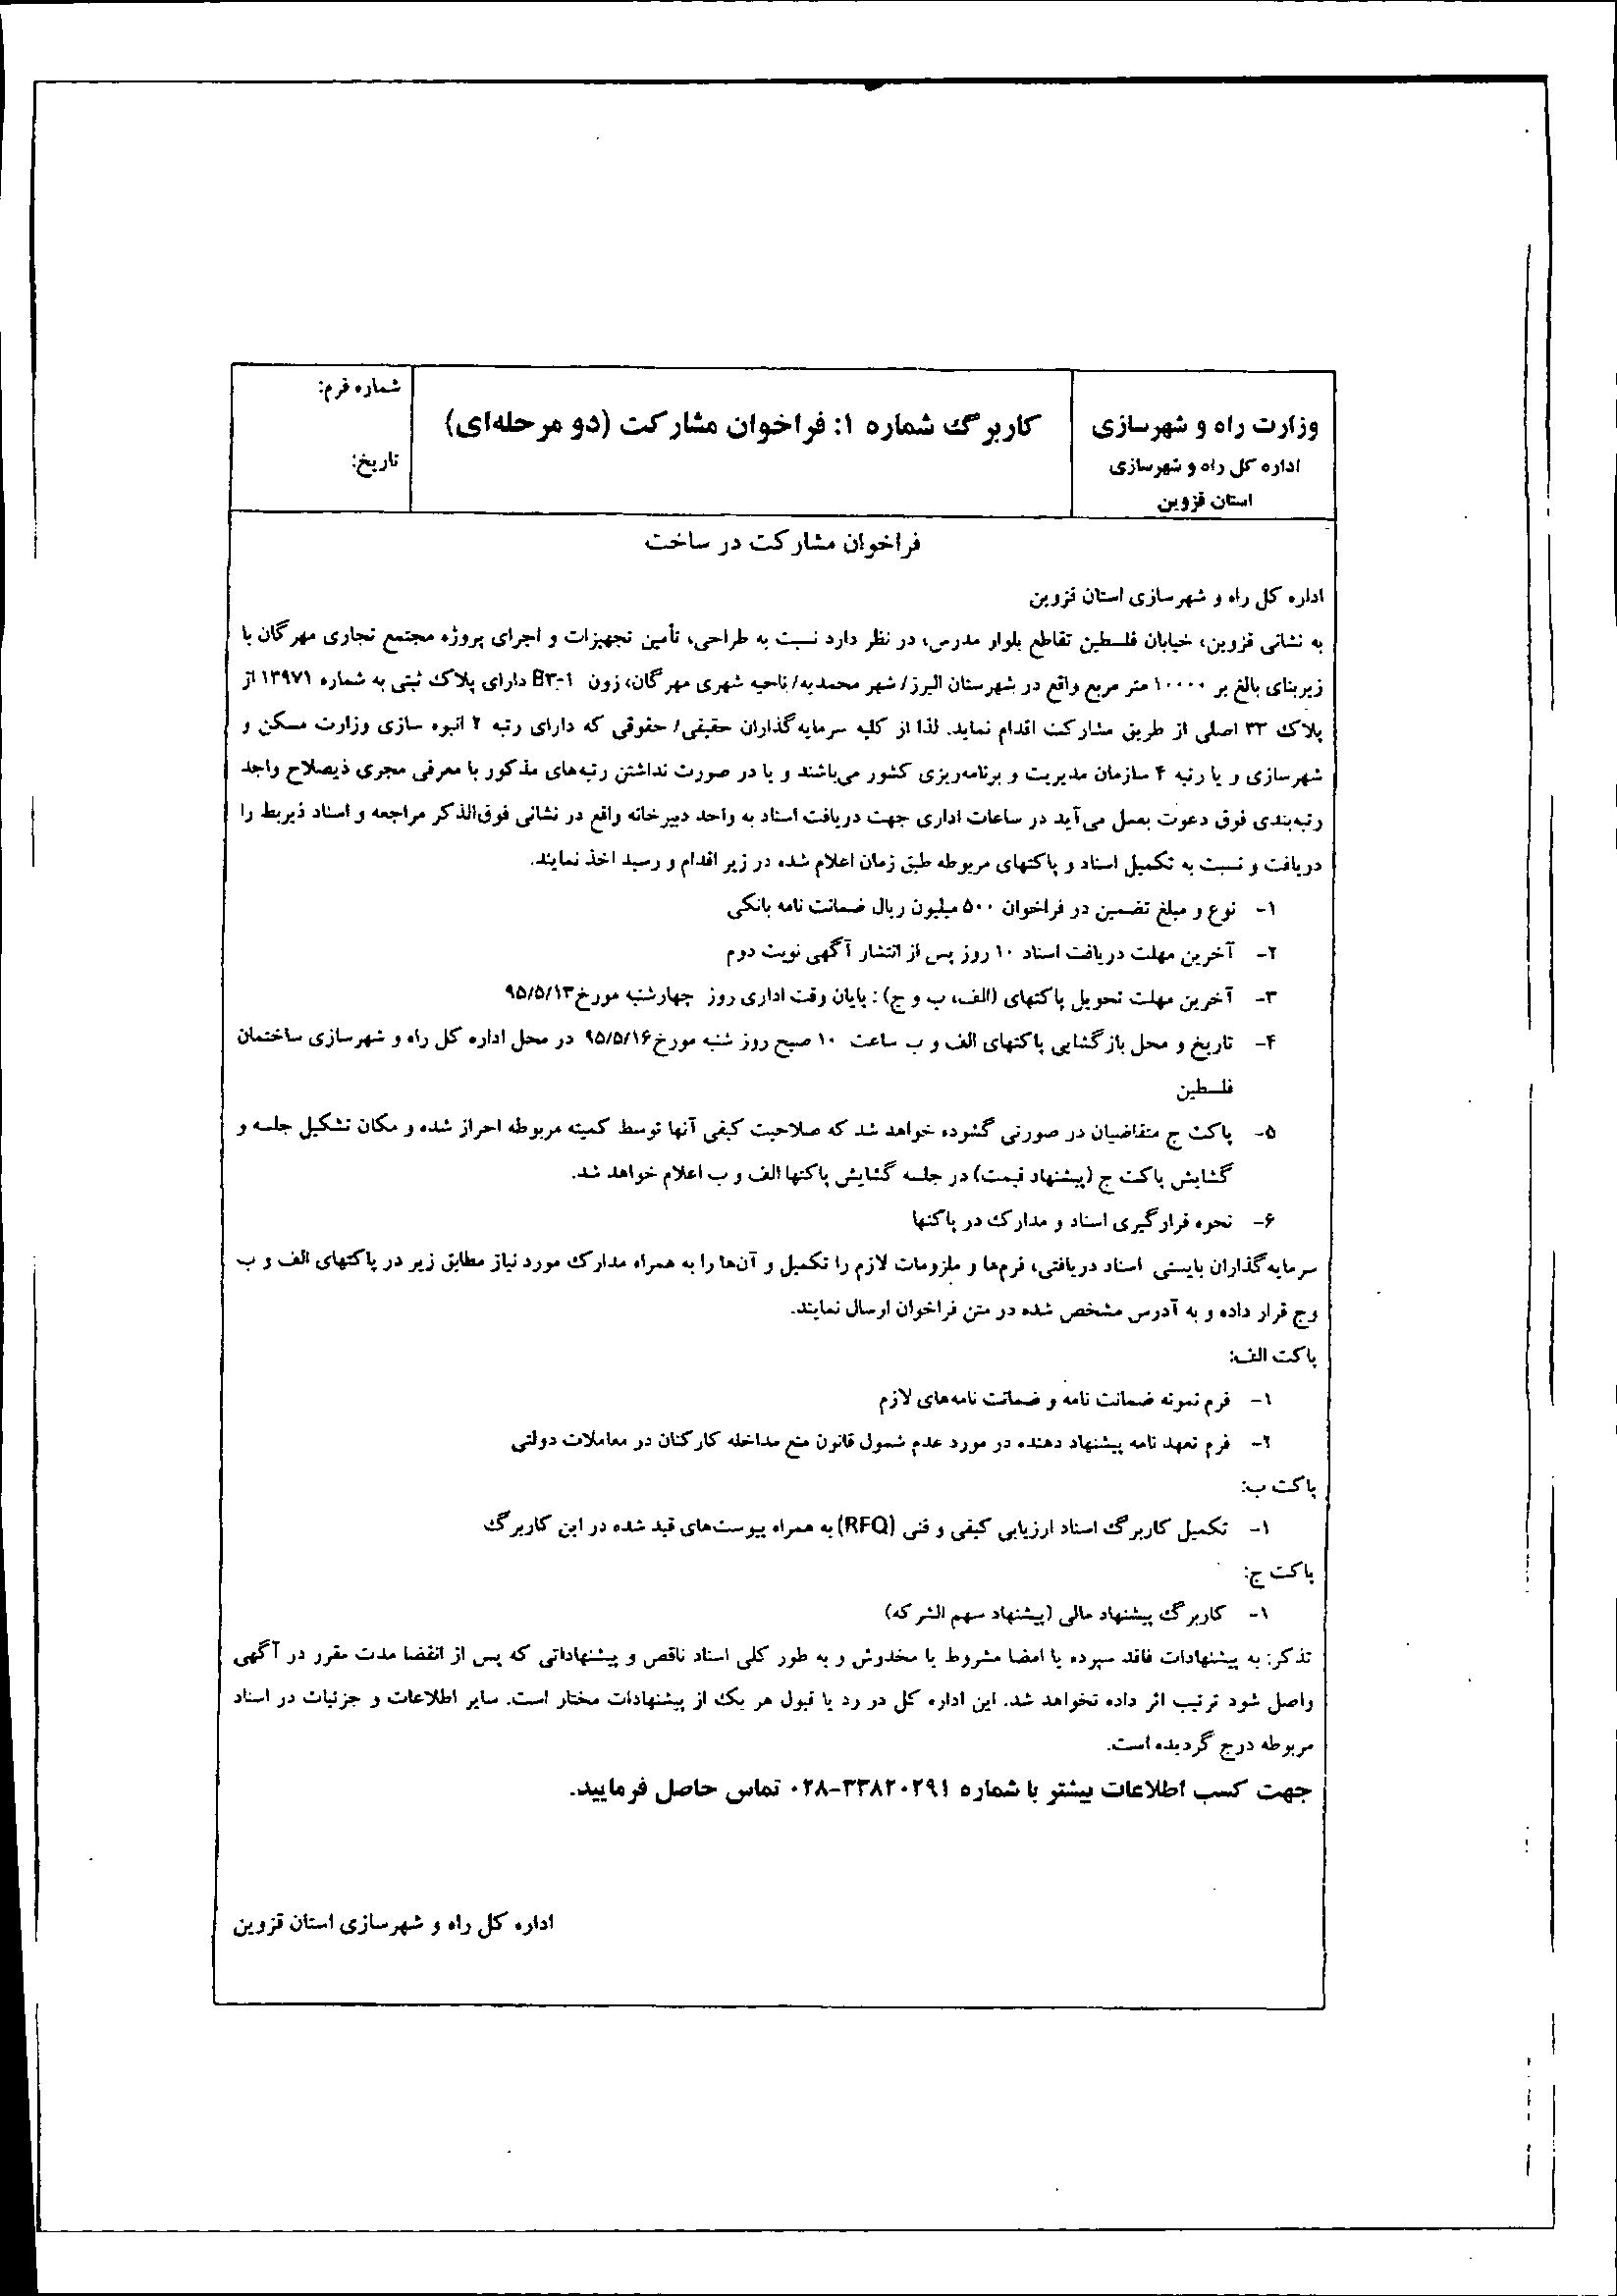 وزارت راه و شهرسازی
اداره کل راه و شهرسازی
استان قزوین
کاربرگ شماره ۱: فراخوان مشارکت (دو مرحله‌ای)
شماره فرم:
تاریخ:
فراخوان مشارکت در ساخت
اداره کل راه و شهرسازی استان قزوین
به نشانی قزوین، خیابان فلسطین تقاطع بلوار مدرس، در نظر دارد نسبت به طراحی، تأمین تجهیزات و اجرای پروژه مجتمع تجاری مهرگان با
زیربنای بالغ بر ۱۰۰۰۰ متر مربع واقع در شهرستان البرز/ شهر محمدیه/ ناحیه شهری مهرگان، زون B۳-۱ دارای پلاک ثبتی به شماره ۱۳۹۷۱ از
پلاک ۳۲ اصلی از طریق مشارکت اقدام نماید. لذا از کلیه سرمایه‌گذاران حقیقی/ حقوقی که دارای رتبه ۲ انبوه سازی وزارت مسکن و
شهرسازی و یا رتبه ۴ سازمان مدیریت و برنامه‌ریزی کشور می‌باشند و یا در صورت نداشتن رتبه‌های مذکور با معرفی مجری ذیصلاح واجد
رتبه‌بندی فوق دعوت بعمل می‌آید در ساعات اداری جهت دریافت اسناد به واحد دبیرخانه واقع در نشانی فوق‌الذکر مراجعه و اسناد ذیربط را
دریافت و نسبت به تکمیل اسناد و پاکتهای مربوطه طبق زمان اعلام شده در زیر اقدام و رسید اخذ نمایند.
۱- نوع و مبلغ تضمین در فراخوان ۵۰۰ میلیون ریال ضمانت نامه بانکی
۲- آخرین مهلت دریافت اسناد ۱۰ روز پس از انتشار آگهی نوبت دوم
۳- آخرین مهلت تحویل پاکتهای (الف، ب و ج) : پایان وقت اداری روز چهارشنبه مورخ ۹۵/۵/۱۳
۴- تاریخ و محل بازگشایی پاکتهای الف و ب ساعت ۱۰ صبح روز شنبه مورخ ۹۵/۵/۱۶ در محل اداره کل راه و شهرسازی ساختمان
فلسطین
۵- پاکت ج متقاضیان در صورتی گشوده خواهد شد که صلاحیت کیفی آنها توسط کمیته مربوطه احراز شده و مکان تشکیل جلسه و
گشایش پاکت ج (پیشنهاد قیمت) در جلسه گشایش پاکتها الف و ب اعلام خواهد شد.
۶- نحوه قرارگیری اسناد و مدارک در پاکتها
سرمایه‌گذاران بایستی اسناد دریافتی، فرم‌ها و ملزومات لازم را تکمیل و آن‌ها را به همراه مدارک مورد نیاز مطابق زیر در پاکتهای الف و ب
وج قرار داده و به آدرس مشخص شده در متن فراخوان ارسال نمایند.
پاکت الف:
۱- فرم نمونه ضمانت نامه و ضمانت نامه‌های لازم
۲- فرم تعهد نامه پیشنهاد دهنده در مورد عدم شمول قانون منع مداخله کارکنان در معاملات دولتی
پاکت ب:
۱- تکمیل کاربرگ اسناد ارزیابی کیفی و فنی (RFQ) به همراه پیوست‌های قید شده در این کاربرگ
پاکت ج:
۱- کاربرگ پیشنهاد مالی (پیشنهاد سهم الشرکه)
تذکر: به پیشنهادات فاقد سپرده یا امضا مشروط یا مخدوش و به طور کلی اسناد ناقص و پیشنهاداتی که پس از انقضا مدت مقرر در آگهی
واصل شود ترتیب اثر داده نخواهد شد. این اداره کل در رد یا قبول هر یک از پیشنهادات مختار است. سایر اطلاعات و جزئیات در اسناد
مربوطه درج گردیده است.
جهت کسب اطلاعات بیشتر با شماره ۳۳۸۲۰۲۹۱-۰۲۸ تماس حاصل فرمایید.
اداره کل راه و شهرسازی استان قزوین